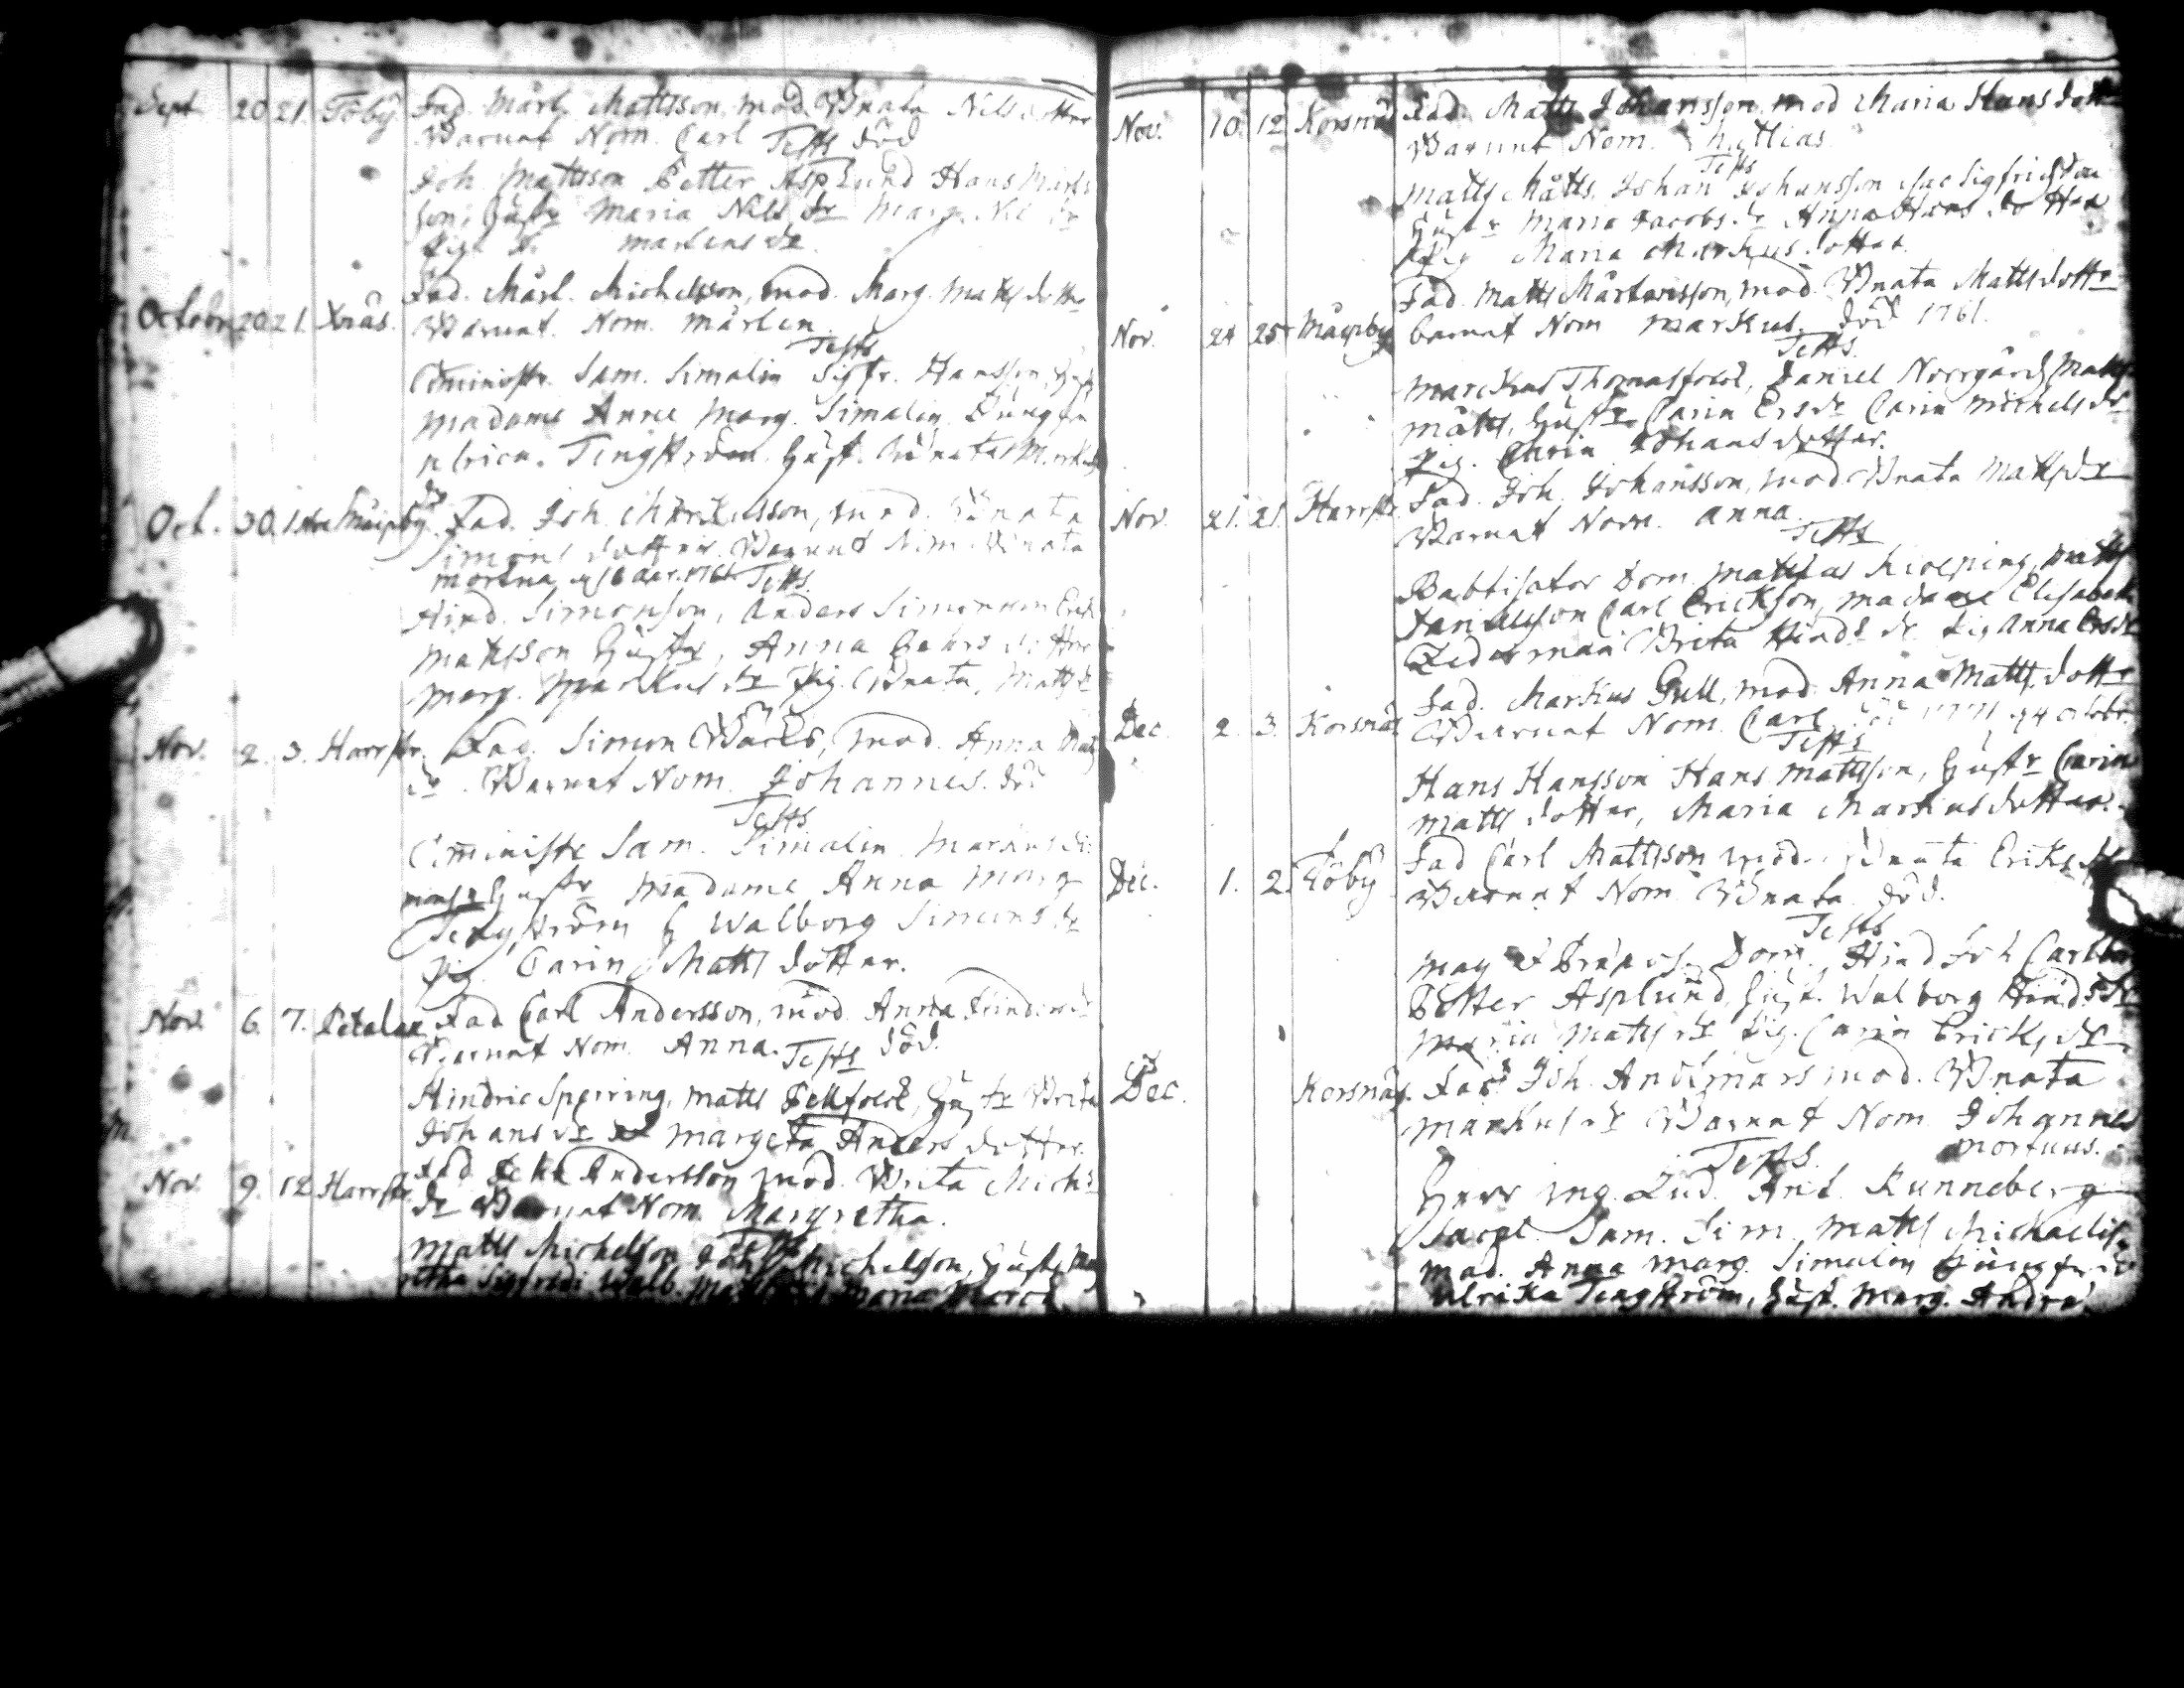 Sept 20 21. Töby Fad. Mårt. Mattsson, mod. Brata Nils dotter
Barnet Nom. Carl Tests död
Joh. Mattsson Petter Asplund Hans Mårts
son, Hustr Maria Nils dr Marg. Nils dr
Pig. Mårtens dr
Octobr 20 21. Xnäs. Fad. Mårt. Michelsson, mod. Marg. Matts dotter
Barnet. Nom. Mårten.
Tests
Cominister. Sam. Simalin Sigfr. Hansson, Hustr
Madame Anna Marg. Simalin Jungfru
Ulrica. Tengström. Hust. Brata Markus
dr
Oct. 30. 1. Nov Måipby. Fad. Joh. Markusson, mod. Brata
Simons dotter. Barnet Nom. Brata
mortua 1761 Tests.
Hind. Simonson, Anders Simonson Erik
Mattsson Hustr, Anna dotter
Marg. Markus dr Pig. Brata, Matts dr
Nov. 2. 3. Harrstr. Fad. Simon Bäcks, mod. Anna Matts
dr. Barnet Nom. Johannes. död
Tests
Cominister Sam. Simalin Markus Si
mons Hustr Madame Anna Marg
Tengström H Walborg Simons dr
Pig. Carin Matts dotter.
Nov. 6. 7. Petalax Fad Carl Andersson, mod. Anna Hindr dr
Barnet Nom. Anna. Tests död.
Hindric Speiring, Matts Pellfolck, Hustr Brita
Johans dr Margeta Anders dotter.
Nov. 9. 12 Harrstr. Fad Andersson mod. Brita Michs
dr Barnet Nom. Margretha.
Matts Michelson Michelson, Hustr Mar
Nov. 10. 12 Korsnäs Fad. Matts Johansson, mod Maria Hans dotter
Barnet Nom. Mattias.
Tests
Matts Matts. Johan Johansson Isac Sigfridson
Hustr Maria Jacobs dr Anna Hans dotter
Pig Maria Markus dotter.
Fad. Matts Mårtensson, mod. Brata Matts dotter
Nov. 24 25 Måipby barnet Nom Markus. död 1761.
Tests.
Marckus Thomasfolck, Daniel Norrgård, Matts
Matts, Hustr Carin Ers dr Carin Michels dr
Pig. Carin Johans dotter.
Nov. 21. 21. Harrstr. Fad. Joh. Johansson, mod Brata Matts dr
Barnet Nom. Anna.
Tests
Babtisator Dom. Mattias Kioeping, Matts
Danielsson Carl Erickson, Madame Elisabet
Zederman Brita Hinds dr Pig Anna Ers dr
Fad. Markus Gull, mod. Anna Matts dotter
Dec. 2. 3. Korsnäs Barnet Nom. Carl död 1771 octobr.
Tests
Hans Hansson Hans Mattsson, Hustr Carin
Matts dotter, Maria Markus dotter.
Fad Carl Mattsson mod. Brata Eriks dr
Dec. 1. 2. Töby Barnet Nom Brata. död.
Tests
Mag & Præpos. Dom. Hind Joh Carlborg
Petter Asplund, Hust. Walborg Hinds dr
Maria Matts dr Pig. Carin Ericks dr
Dec. Korsnäs. Fad. Joh. Andimars mod. Brata
Markus dr Barnet Nom Johannes
Tests. mortuus.
Herr Ing. Lud. Ant. Runneberg
Sacel. Sam. Sim. Matts Michaelis
Mad. Anna Marg. Simalin Jungfru
Ulrika Tengström, Hust. Marg. Andre